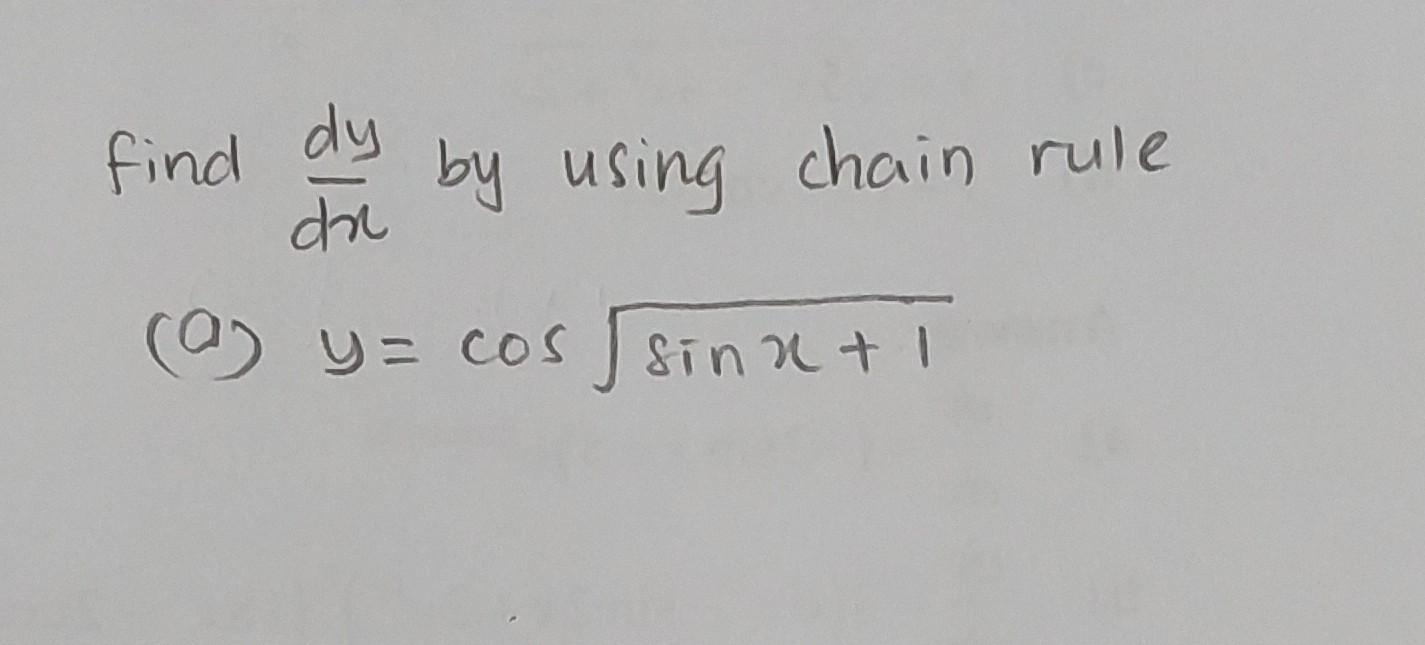 find dy/dx by using chain rule
(a) y = cos √(sin x + 1)